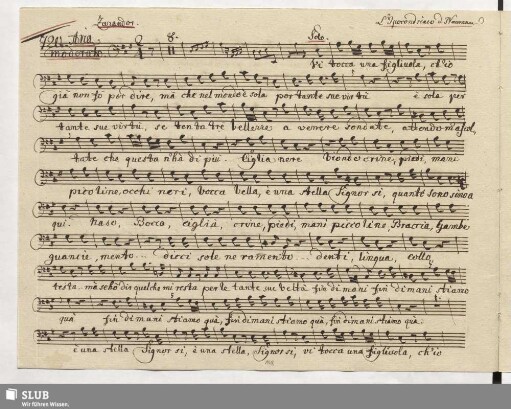 Zanandor.
Aria.
moderato
Solo.
Vi tocca una figliuola, ch'io
già non so può dire, ma che nel mondo è sola per tante sue virtù è sola per
tante sue virtù, se tontatrè bellezze a venere son date,
tate che questa n'hà di più. Ciglia nere bionde crine, piedi, mani
piccoline, occhi neri, bocca bella, è una stella Signor si, quanto sono sinora
qui. Naso, Bocca, ciglia, crine, piedi, mani piccoline, Braccia, Gambe
guancie, mento... dieci sole ne ramento... denti, lingua, collo,
testa. ma se ho dir qualche mi resta per le tante sue beltà fin dimani fin dimani stiamo
quà fin dimani stiamo quà, fin dimani stiamo quà, fin dimani stiamo quà.
è una stella Signor si, è una stella, Signor si, vi tocca una figliuola, ch'io
SLUB
Wir führen Wissen.